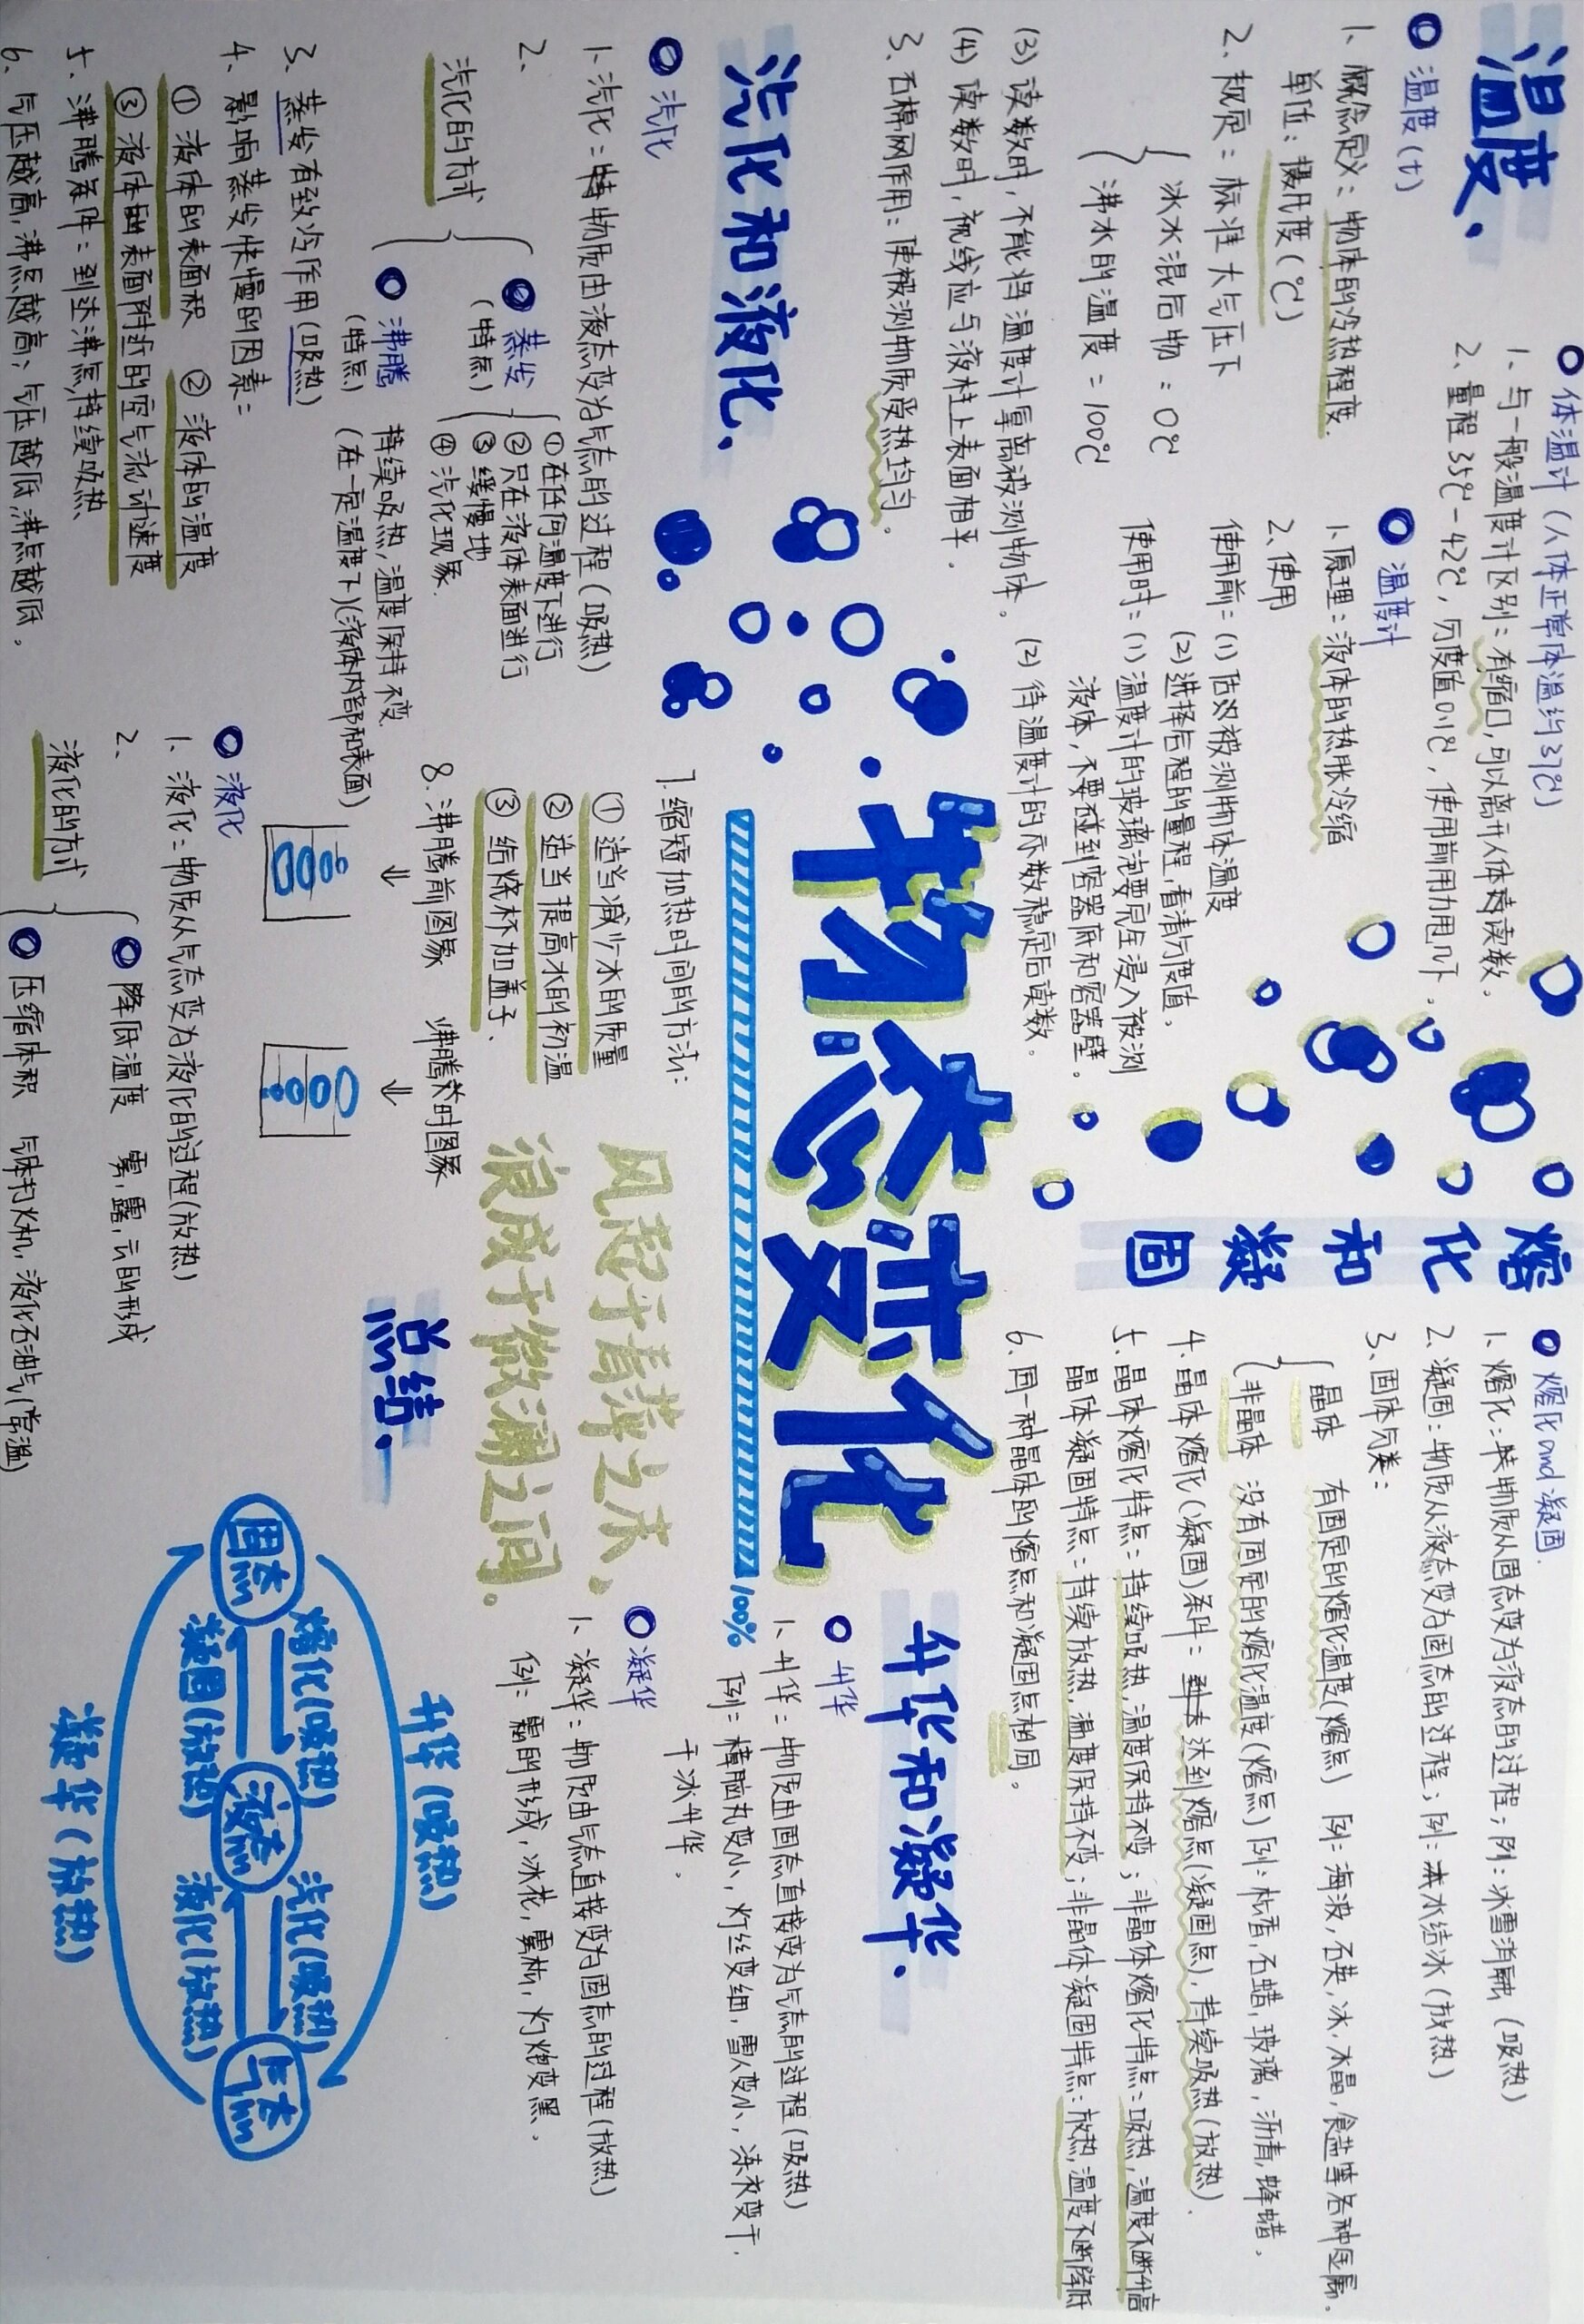 温度.
温度(t)
1、概念定义：物体的冷热程度.
单位：摄氏度(℃)
2、规定：标准大气压下
冰水混合物：0℃
沸水的温度：100℃
体温计(人体正常体温约37℃)
1、与一般温度计区别：有缩口,可以离开人体读数.
2、量程35℃-42℃,分度值0.1℃,使用前用力甩几下.
温度计
1、原理：液体的热胀冷缩
2、使用
使用前：(1)估测被测物体温度
(2)选择合程的量程,看清分度值,
使用时：(1)温度计的玻璃泡要完全浸入被测
液体,不要碰到容器底和容器壁.
(2)待温度计的示数稳定后读数.
(3)读数时,不能将温度计拿离被测物体.
(4)读数时,视线应与液柱上表面相平.
3、石棉网作用：使被测物质受热均匀.
熔化和凝固
熔化and凝固.
1、熔化：物质从固态变为液态的过程；例：冰雪消融(吸热)
2、凝固：物质从液态变为固态的过程；例：水结冰(放热)
3、固体分类：
晶体 有固定的熔化温度(熔点) 例：海波,石英,冰,水晶,食盐等各种金属.
非晶体 没有固定的熔化温度(熔点) 例：松香,石蜡,玻璃,沥青,蜂蜡.
4、晶体熔化(凝固)条件：达到熔点(凝固点),持续吸热(放热).
5、晶体熔化特点：持续吸热,温度保持不变；非晶体熔化特点：吸热,温度不断升高
晶体凝固特点：持续放热,温度保持不变；非晶体凝固特点：放热,温度不断降低
6、同一种晶体的熔点和凝固点相同.
物态变化
100%
风起于青萍之末、
浪成于微澜之间。
汽化和液化.
汽化
1、汽化：物质由液态变为气态的过程(吸热)
2、
汽化的方式
蒸发
(特点)
①在任何温度下进行
②只在液体表面进行
③缓慢地
④汽化现象.
沸腾
(特点)
持续吸热,温度保持不变.
(在一定温度下)(液体内部和表面)
3、蒸发有致冷作用(吸热)
4、影响蒸发快慢的因素：
①液体的表面积 ②液体的温度
③液体的表面附近的空气流动速度
5、沸腾条件：到达沸点,持续吸热
6、气压越高,沸点越高；气压越低,沸点越低.
7、缩短加热时间的方法：
①适当减少水的质量
②适当提高水的初温
③给烧杯加盖子、
8、沸腾前图象 沸腾时图象
⇓ ⇓
液化
1、液化：物质从气态变为液化的过程(放热)
2、
液化的方式
降低温度 雾,露,云的形成
压缩体积 气体打火机,液化石油气(常温)
升华和凝华.
升华
1、升华：物质由固态直接变为气态的过程(吸热)
例：樟脑丸变小,灯丝变细,雪人变小,冻衣变干.
干冰升华.
凝华
1、凝华：物质由气态直接变为固态的过程(放热)
例：霜的形成,冰花,雾凇,灯炮变黑.
总结.
升华(吸热)
熔化(吸热) 汽化(吸热)
固态 液态 气态
凝固(放热) 液化(放热)
凝华(放热)